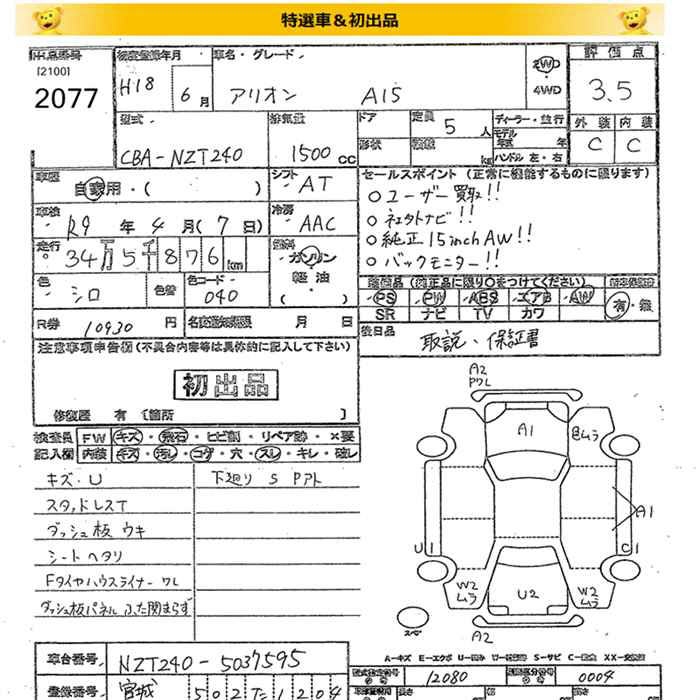 特選車&初出品
出品番号
[2100]
2077
初度登録年月
H18 6月
車名・グレード
アリオン A15
2WD
4WD
評価点
3.5
外装 内装
C C
型式
CBA-NZT240
排気量
1500 CC
ドア
形状
定員 5 人
積載 kg
ディーラー・並行
モデル年式 年
ハンドル 左・右
車歴
自家用・( )
シフト
AT
車検
R9 年 4 月(7 日)
冷房
AAC
走行
34万5千876 km
燃料
ガソリン
軽油
( )
色
シロ
色替
色コード
040
R券 10930 円
名義変更期限 月 日
セールスポイント (正常に機能するものに限ります)
○ユーザー買取!!
○社外ナビ!!
○純正15inchAW!!
○バックモニター!!
装備品(純正品に限り○をつけてください)
PS PW ABS エアB AW
SR ナビ TV カワ
有・無
後日品
取説・保証書
注意事項申告欄(不具合内容等は具体的に記入して下さい)
初出品
修復歴 有〔箇所 〕
検査員 FW キズ・飛石・ヒビ割・リペア跡・×要
記入欄 内装 キズ・汚レ・コゲ・穴・スレ・キレ・破レ
キズ・U
下廻り S Pアト
スタッドレスT
ダッシュ板 ウキ
シートヘタリ
Fタイヤハウスライナーワレ
ダッシュ板パネルふた閉まらず
A2
Pワレ
A1
色ムラ
A1
U1
C1
W2
ムラ
U2
W2
ムラ
スペア
A2
A-キズ E-エクボ U-凹み W-補修跡 S-サビ C-腐食 XX-交換済
車台番号 NZT240-5037595
登録番号 宮城 502 た 1204
型式指定番号 12080
類別区分番号 0004
長さ